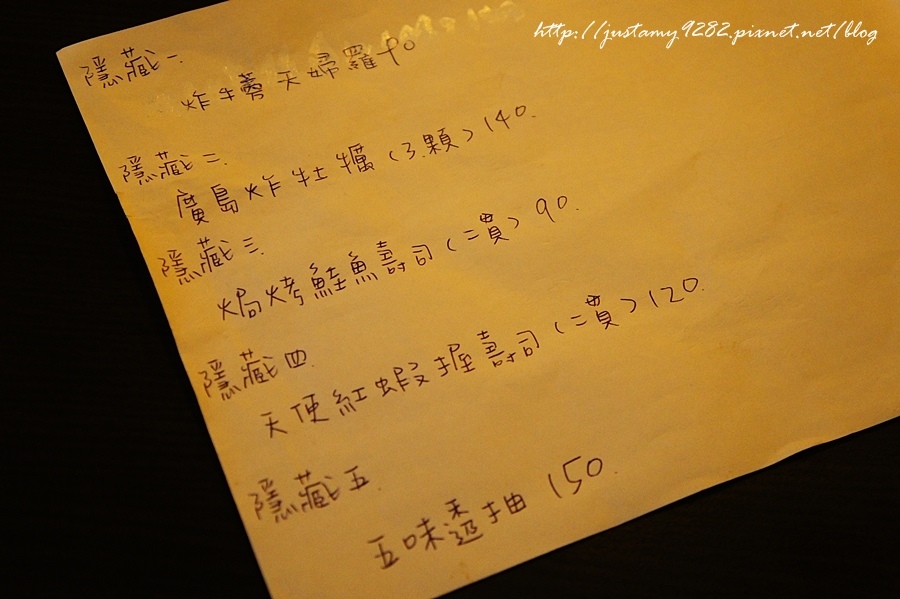 http://justamy9282.pixnet.net/blog
隱藏一.
炸牛蒡天婦羅90
隱藏二.
廣島炸牡犡(3.顆)140.
隱藏三.
焗烤鮭魚壽司(二貫)90.
隱藏四
天使紅蝦握壽司(二貫)120.
隱藏五.
五味透抽 150.